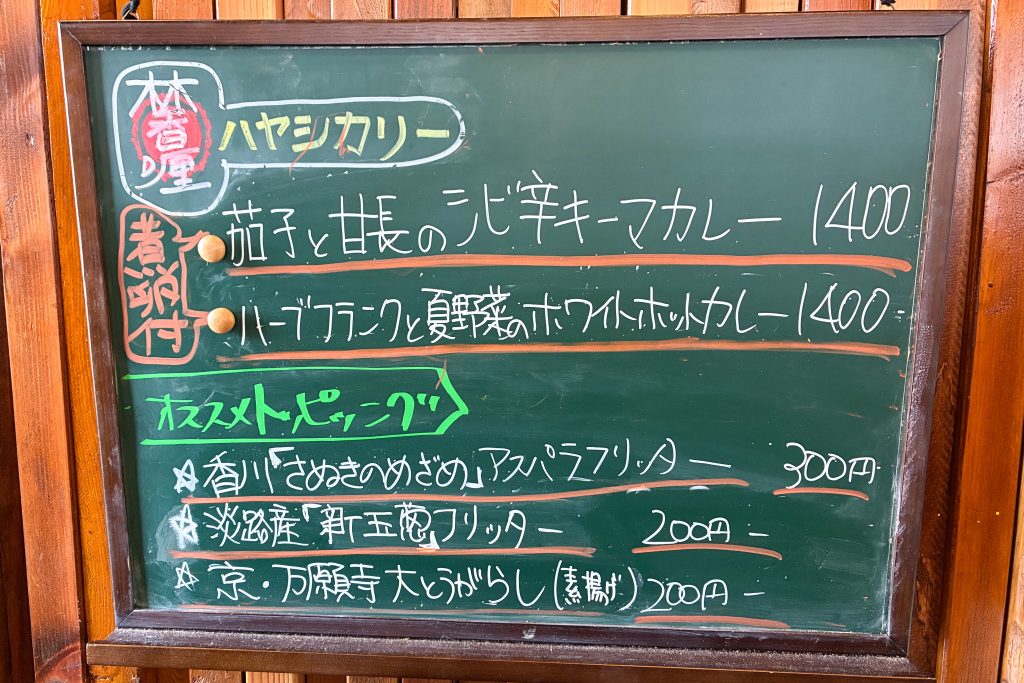 林香厘
ハヤシカリー
茄子と甘長のシビ辛キーマカレー 1400
ハーブフランクと夏野菜のホワイトホットカレー 1400-
オススメトッピッング
☆香川「さぬきのめざめ」アスパラフリッター 300円-
☆淡路産「新玉葱」フリッター 200円-
☆京・万願寺大とうがらし(素揚げ) 200円-